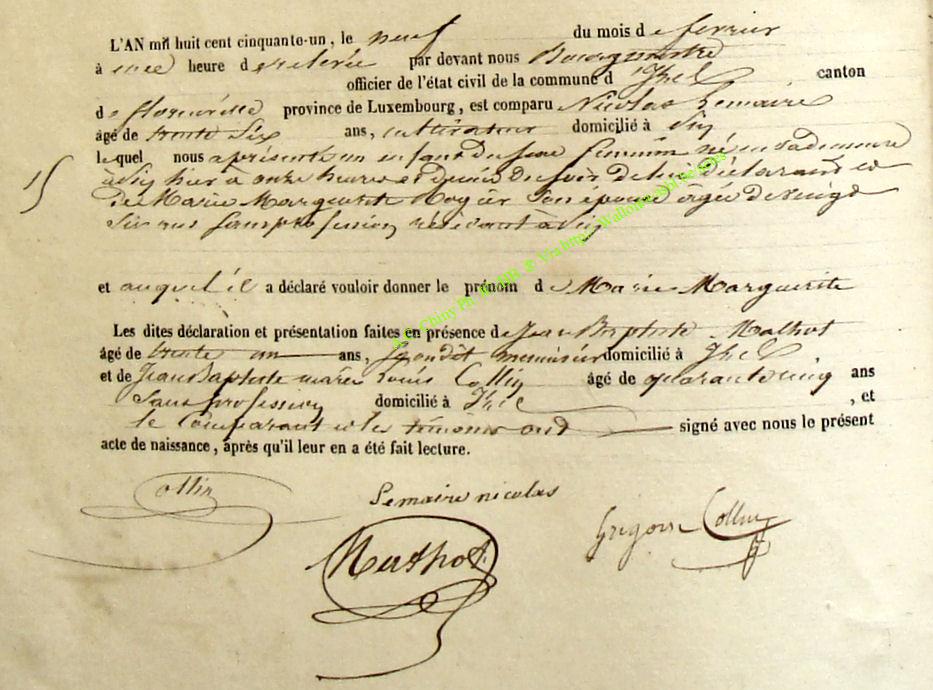 L'AN mil huit cent cinquante-un, le neuf du mois de fevrier
à une heure de relevée par devant nous Bourgmestre
officier de l'état civil de la commune d'Izel, canton
de florenville province de Luxembourg, est comparu Nicolas Lemaire
âgé de trente Six ans, cultivateur domicilié à Pin
lequel nous a présenté un enfant du sexe féminin né en sa demeure
à Pin hier à onze heures et demie du soir de lui déclarant et
de Marie Marguerite Son épouse âgée de vingt
Six ans sans profession résidant à Pin
15
et auquel il a déclaré vouloir donner le prénom de Marie Marguerite
Les dites déclaration et présentation faites en présence de Jean Baptiste Mathot
âgé de trente un ans, menuisier domicilié à Izel
et de Jean Baptiste marie Louis Collin âgé de quarante cinq ans
Sans profession domicilié à Izel, et
le Comparant et les témoins ont signé avec nous le présent
acte de naissance, après qu'il leur en a été fait lecture.
Collin
Lemaire nicolas
Mathot
Grégoire Collin